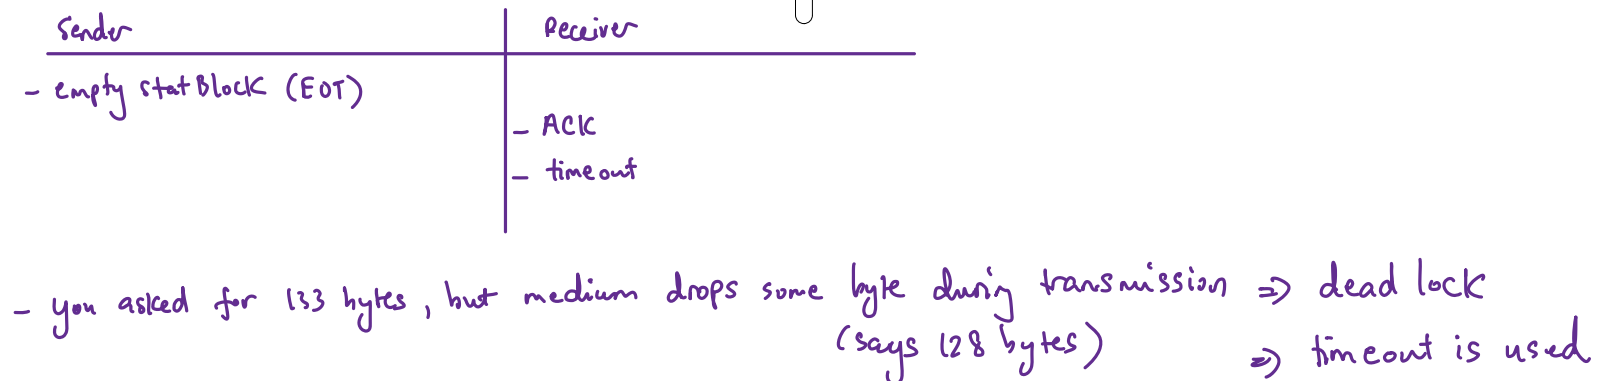 Sender
Receiver
- empty stat Block (EOT)
- ACK
- timeout
- you asked for 133 bytes, but medium drops some byte during transmission => dead lock
(says 128 bytes) => timeout is used